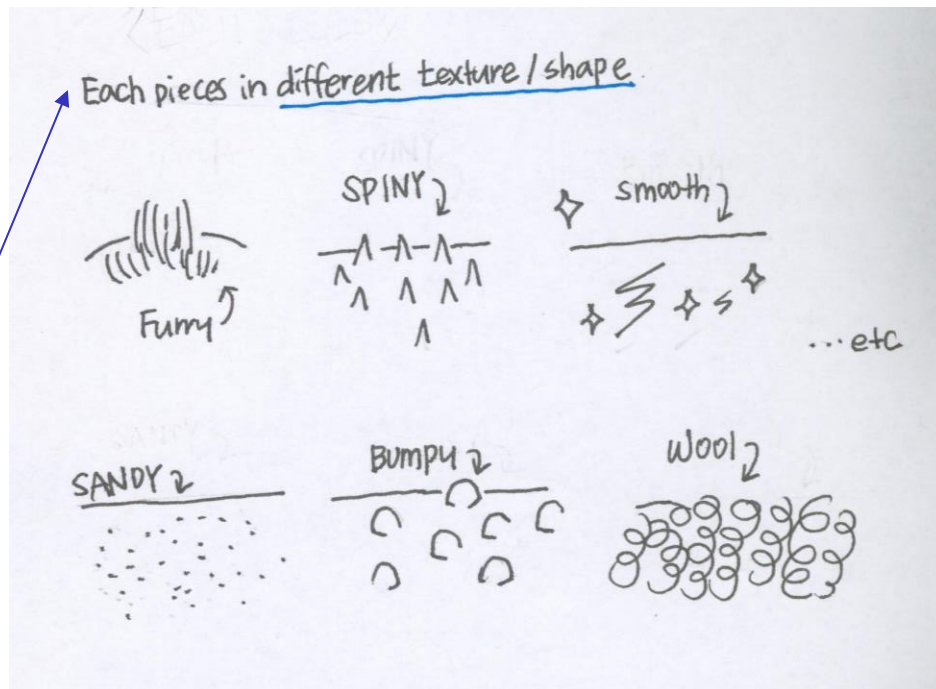 Each pieces in different texture / shape.
SPINY
smooth
Furry
...etc
SANDY
BUMPY
Wool